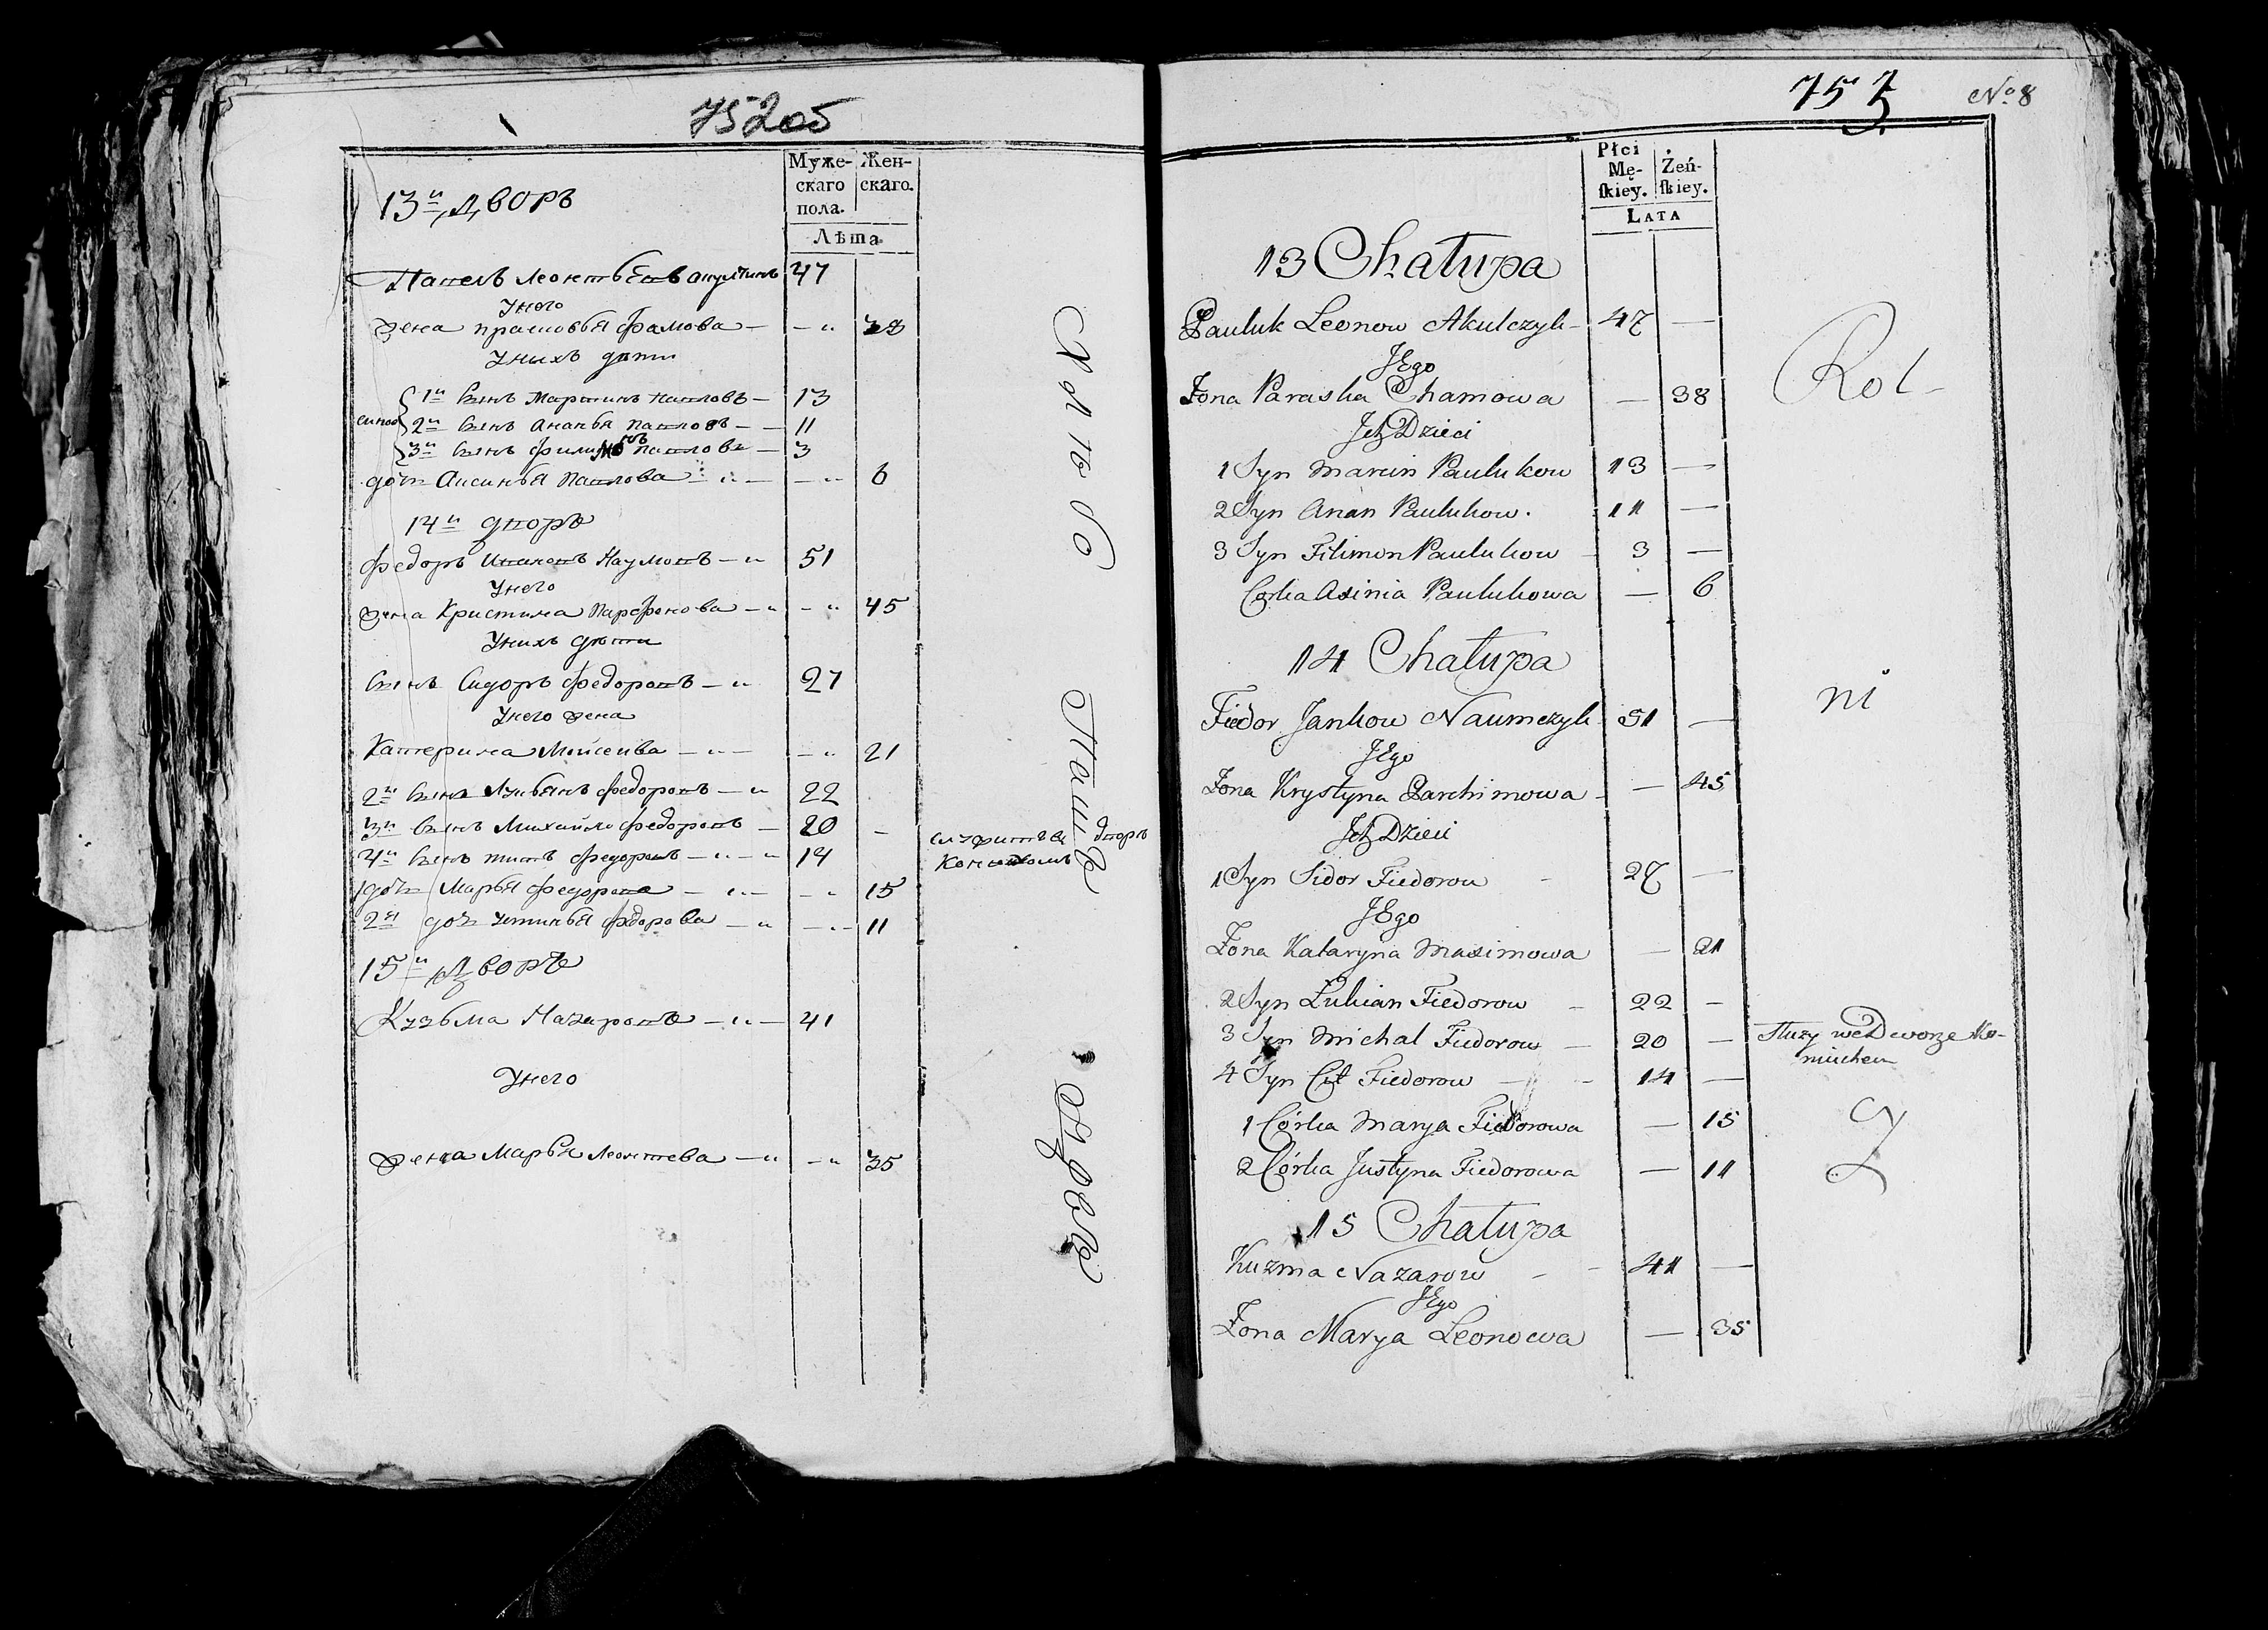 752об
Муже-
скаго
пола.
Жен-
скаго.
Лѣта
13й Дворъ
Павелъ Леонтьевъ акулчикъ 47
У него
жена прасковья фамова — — " 38
У нихъ дѣти
1й сынъ Мартинъ павловъ — 13
2й сынъ Ананья павловъ — — 11
3й сынъ филимонъ павловъ — 3
дочь Аксинья павлова — " — — " 6
14й дворъ
федоръ Ивановъ Наумовъ — " 51
У него
жена Кристина Парфенова — " — " 45
У нихъ дѣти
сынъ Сидоръ федоровъ — " 27
У него жена
Катерина Моисеива — " — — " 21
2й сынъ Лукьянъ федоровъ — " 22
3й сынъ Михайло федоровъ — 20 —
служитъ въ дворѣ
Конюхомъ
4й сынъ титъ федоровъ — " — " 14
1 дочь Марья федорова — " — — " 15
2я дочь устинья федорова — " — " — 11
15й Дворъ
Кузьма Назаровъ — " — 41
У него
жена Марья Леонтева — " — " 35
Хлѣбо
Паши
753
No 8
Płci
Mę-
ſkiey.
Żeń-
ſkiey.
LATA
13 Chałupa
Pauluk Leonow Akulczyk - 47 —
JEgo
Żona Paraska Chamowa — 38
Jch Dzieci
1 Syn Marcin Paulukow 13 —
2 Syn Anan Paulukow. 11 —
3 Syn Filimon Paulukow - 3 —
Corka Axinia Paulukowa — 6
14 Chałupa
Fiedor Jankow Naumczyk 51 —
JEgo
Żona Krystyna Parchimowa - — 45
Jch Dzieci
1 Syn Sidor Fiedorow - 27 —
JEgo
Żona Kataryna Maximowa — 21
2 Syn Łukian Fiedorow - 22 —
3 Syn Michal Fiedorow — 20 — Służy we Dworze Ko-
niuchem
4 Syn Cit Fiedorow — - 14 —
1 Córka Marya Fiedorowa — 15
2 Córka Justyna Fiedorowa — 11
15 Chałupa
Kuzma Nazarow - - 41 —
JEgo
Żona Marya Leonowa — 35
Rol-
ni
cy